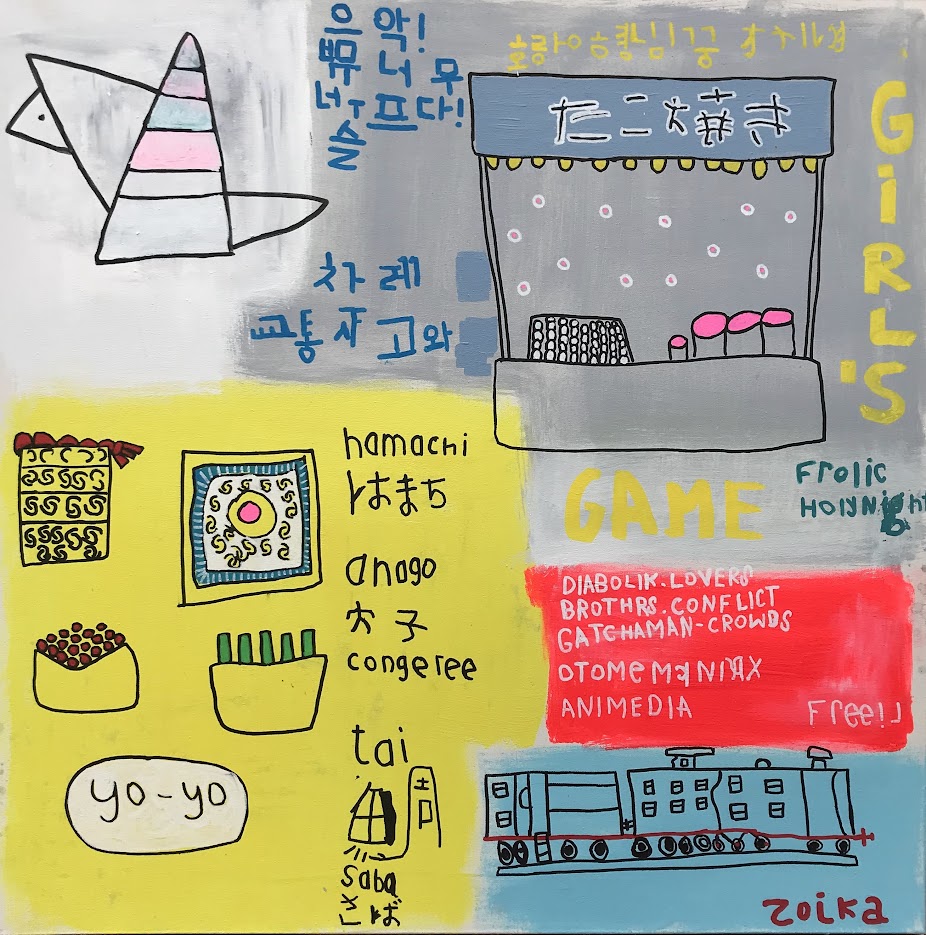 으악!
뿌 너무
너ㅜ프다!
슬
たこ焼き
GiRL'S
차례
교통사고와
GAME
Frolic
HOlyNight
hamachi
はまち
anago
穴子
congeree
tai
saba
さば
yo-yo
DIABOLIK.LOVERS
BROTHRS.CONFLICT
GATCHAMAN-CROWDS
OTOMEMANIAX
ANIMEDIA
Free!
zoika